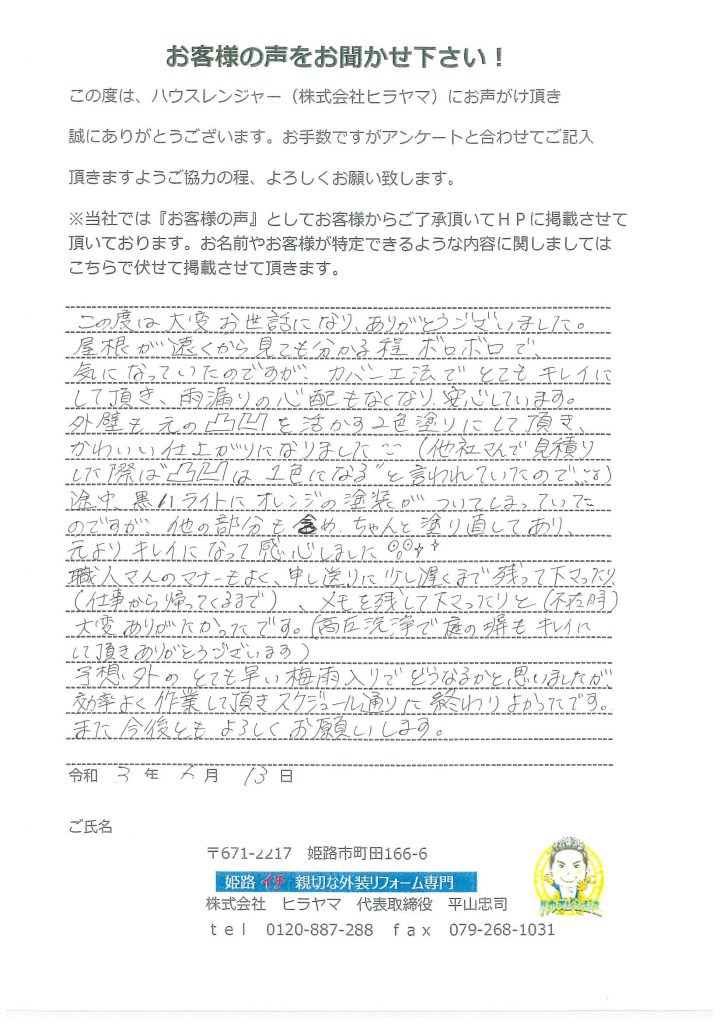 お客様の声をお聞かせ下さい！
この度は、ハウスレンジャー（株式会社ヒラヤマ）にお声がけ頂き
誠にありがとうございます。お手数ですがアンケートと合わせてご記入
頂きますようご協力の程、よろしくお願い致します。
※当社では『お客様の声』としてお客様からご了承頂いてＨＰに掲載させて
頂いております。お名前やお客様が特定できるような内容に関しましては
こちらで伏せて掲載させて頂きます。
この度は大変お世話になり、ありがとうございました。
屋根が遠くから見ても分かる程ボロボロで、
気になっていたのですが、カバー工法でとてもキレイに
して頂き、雨漏りの心配もなくなり、安心しています。
外壁も元の凸凹を活かす2色塗りにして頂き、
かわいい仕上がりになりました（他社さんで見積り
した際は"凸凹は1色になる"と言われていたので、）
途中、黒いライトにオレンジの塗装がついてしまっていた
のですが、他の部分も含め、ちゃんと塗り直してあり、
元よりキレイになって感心しました
職人さんのマナーもよく、申し送りに少し遅くまで残って下さったり
（仕事から帰ってくるまで）、メモを残して下さったりと（不在時）
大変ありがたかったです。（高圧洗浄で庭の塀もキレイに
して頂きありがとうございます）
予想外のとても早い梅雨入りでどうなるかと思いましたが、
効率よく作業して頂きスケジュール通りに終わりよかったです。
また今後ともよろしくお願いします。
令和 3 年 6 月 13 日
ご氏名
〒671-2217 姫路市町田166-6
姫路 イチ 親切な外装リフォーム専門
株式会社 ヒラヤマ 代表取締役 平山忠司
ｔｅｌ 0120-887-288 ｆａｘ 079-268-1031
ハウスレンジャー